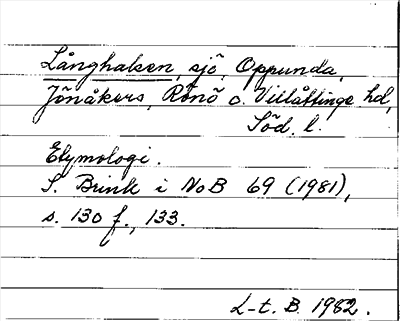 Långhalsen, sjö, Oppunda,
Jönåkers, Rönö o. Villåttinge hd,
Söd. l.
Etymologi.
S. Brink i NoB 69 (1981),
s. 130 f., 133.
L-t. B. 1982.